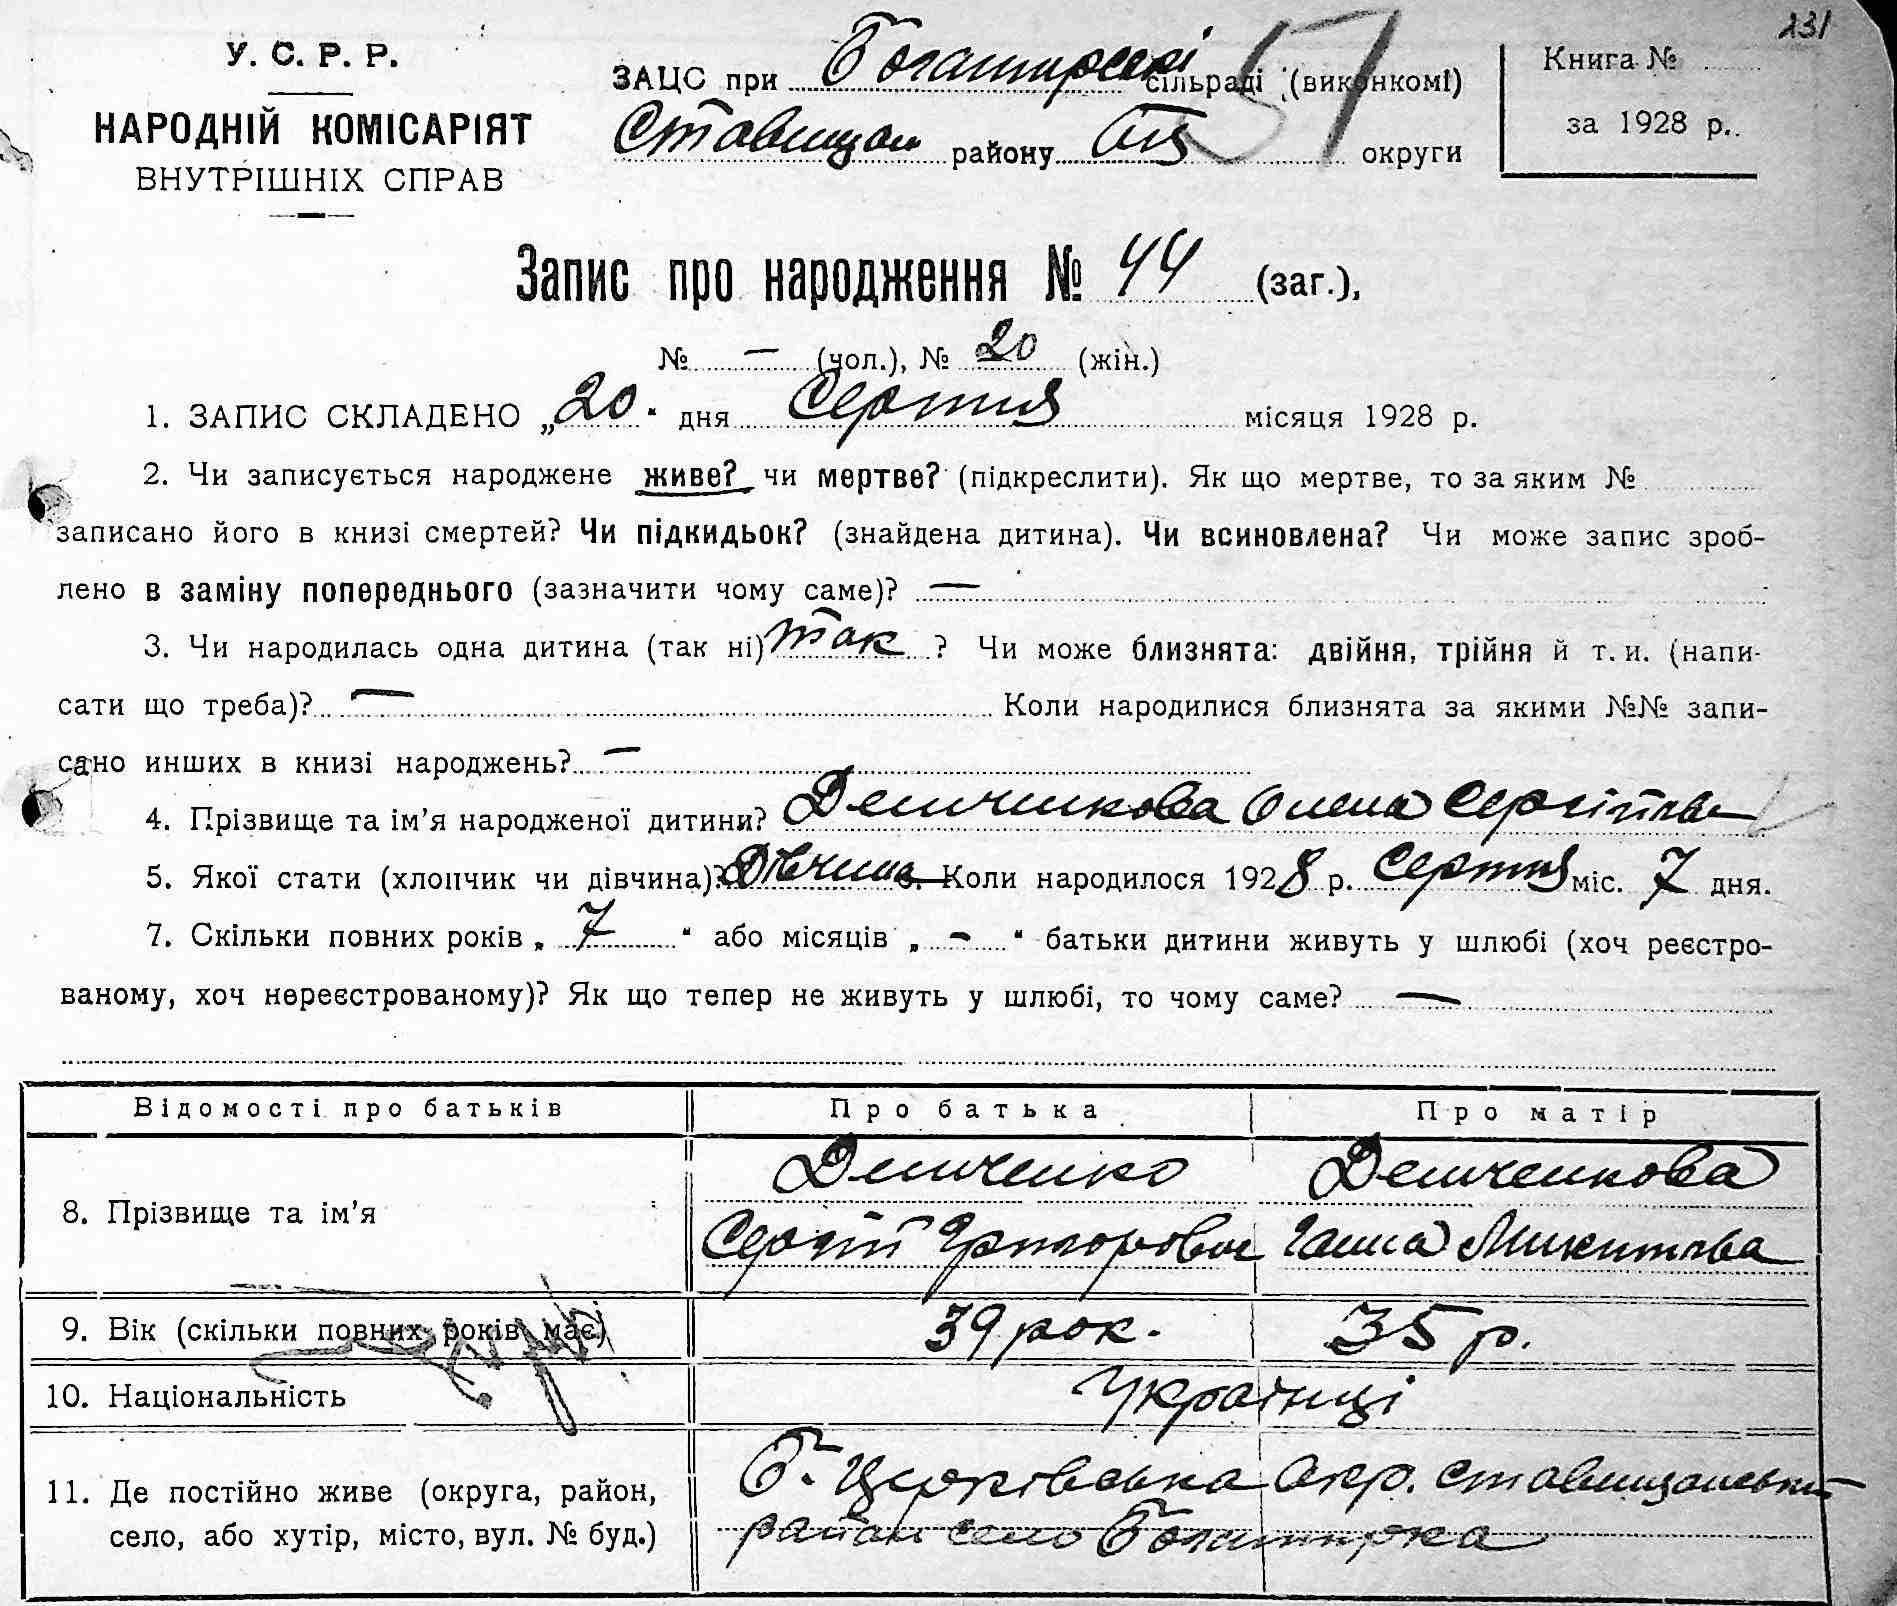 231
У. С. Р. Р.
НАРОДНІЙ КОМІСАРІЯТ
ВНУТРІШНІХ СПРАВ
ЗАЦС при Богатирській сільраді (виконкомі)
Ставищан району БЦ округи
57
Книга №
за 1928 р.
Запис про народження № 44 (заг.),
№ — (чол.), № 20 (жін.)
1. ЗАПИС СКЛАДЕНО „20" дня Серпня місяця 1928 р.
2. Чи записується народжене живе? чи мертве? (підкреслити). Як що мертве, то за яким №
записано його в книзі смертей? Чи підкидьок? (знайдена дитина). Чи всиновлена? Чи може запис зроб-
лено в заміну попереднього (зазначити чому саме)? —
3. Чи народилась одна дитина (так ні) так ? Чи може близнята: двійня, трійня й т. и. (напи-
сати що треба)? — Коли народилися близнята за якими №№ запи-
сано инших в книзі народжень? —
4. Прізвище та ім'я народженої дитини? Демченкова Олена Сергіївна
5. Якої стати (хлопчик чи дівчина)? Дівчина 6. Коли народилося 1928 р. Серпня міс. 7 дня.
7. Скільки повних років „ 7 " або місяців „ - " батьки дитини живуть у шлюбі (хоч реєстро-
ваному, хоч нереєстрованому)? Як що тепер не живуть у шлюбі, то чому саме? —
Відомості про батьків Про батька Про матір
8. Прізвище та ім'я Демченко Демченкова
Сергій Григорович Ганна Микитова
9. Вік (скільки повних років має) 39 рок. 35 р.
10. Національність Українці
11. Де постійно живе (округа, район, Б. Церківська Окр. Ставищанський
село, або хутір, місто, вул. № буд.) район село Богатирка